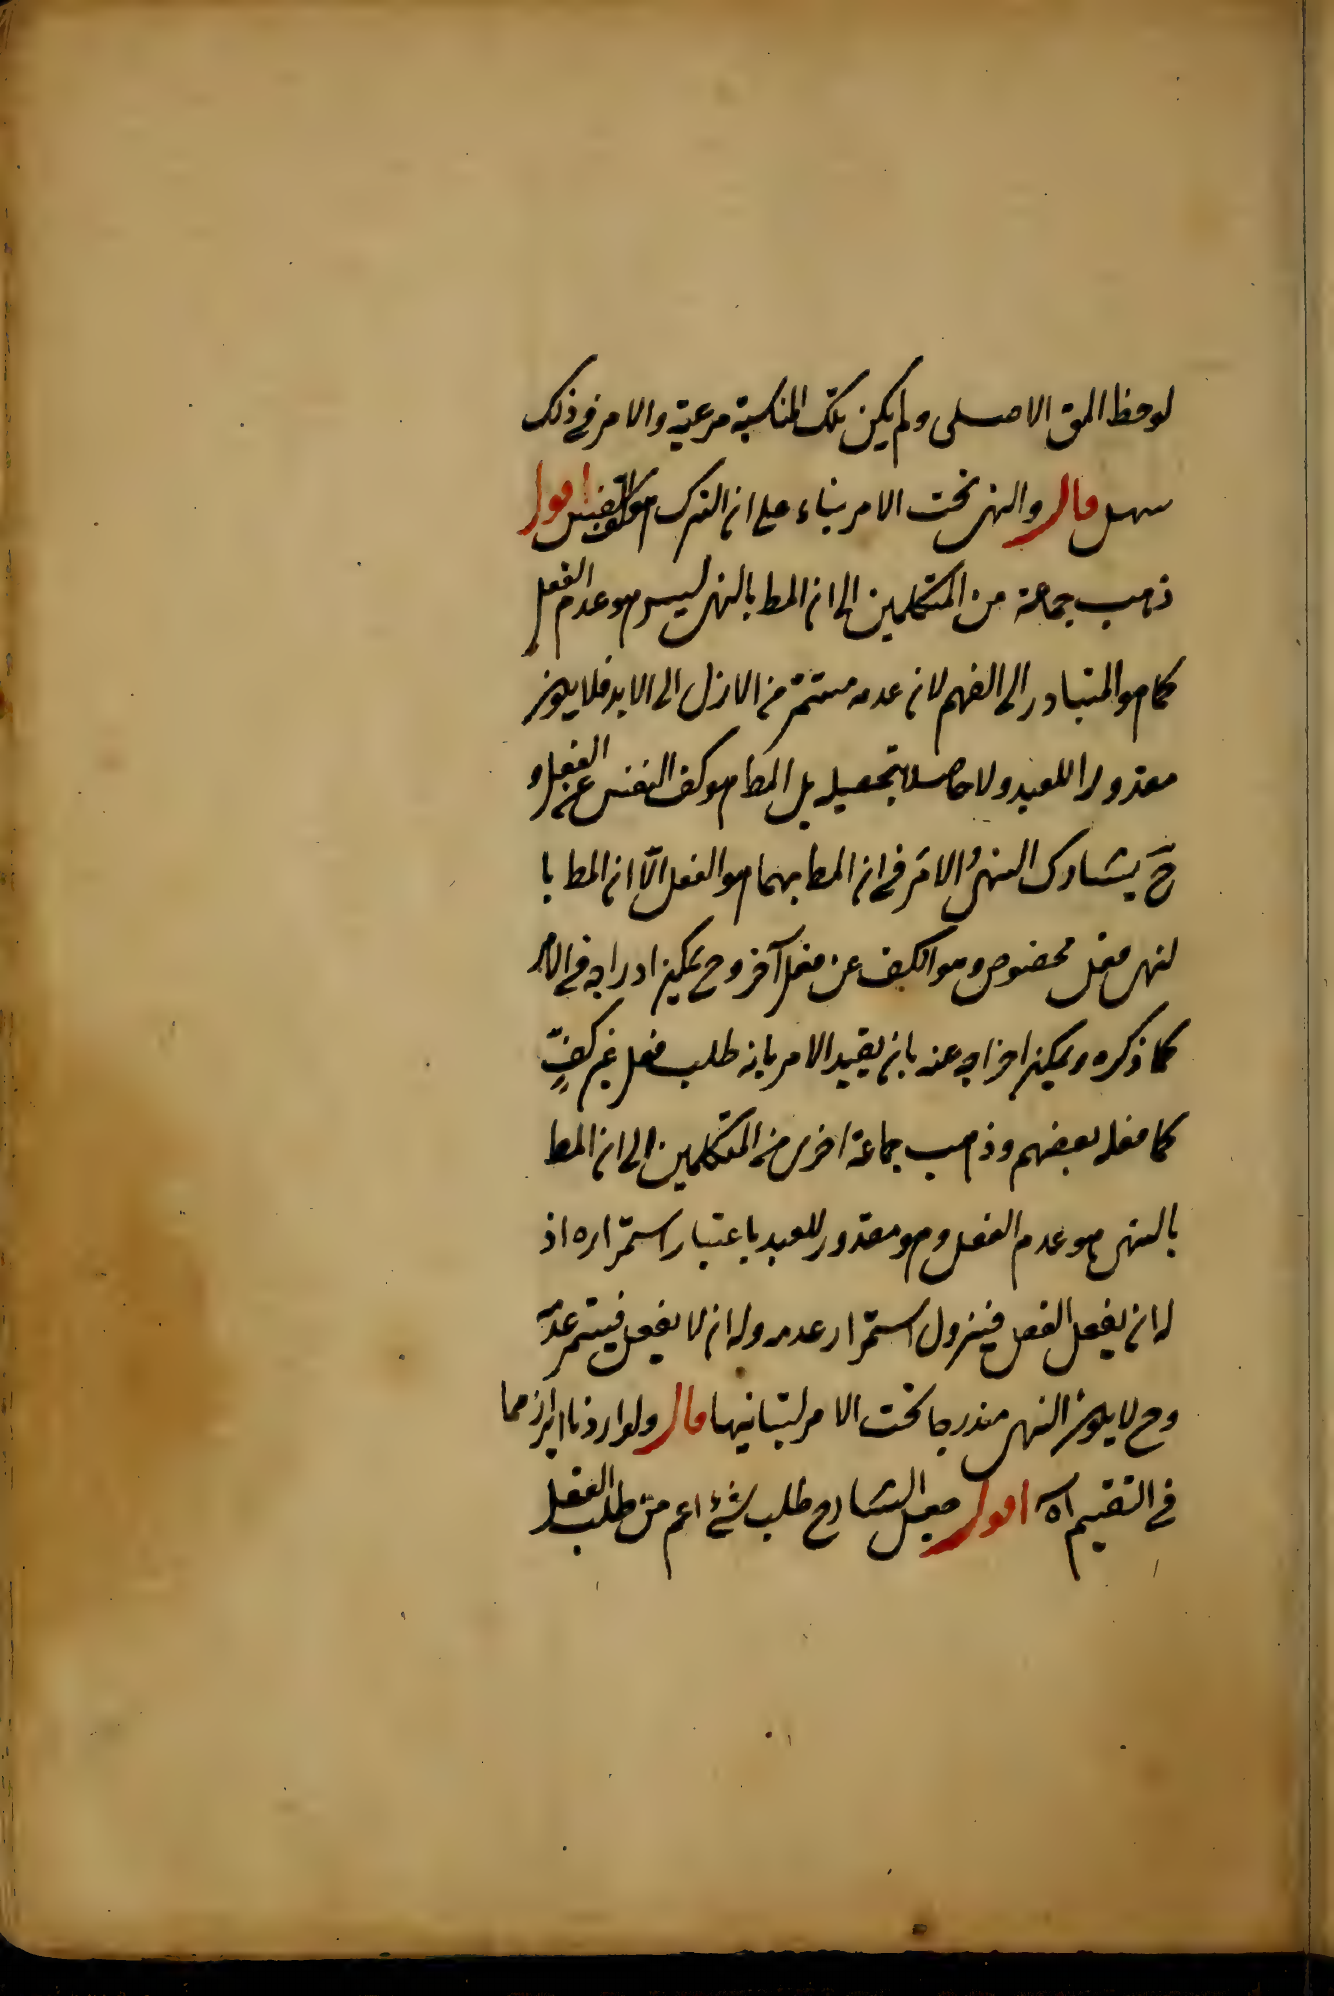 لوحظ المعنى الاصلى ولم يكن تلك المناسبة مرعية والامر فى ذلك
سهل قال والنهى تحت الامر بناء على ان الترك هو كف النفس اقول
ذهب جماعة من المتكلمين الى ان المط بالنهى ليس هو عدم الفعل
كما هو المتبادر الى الفهم لان عدمه مستمر من الازل الى الابد فلا يكون
مقدورا للعبد ولا حاصلا بتحصيله بل المط هو كف النفس عن الفعل و
ح يشارك النهى الامر فى ان المط بهما هو الفعل الّا ان المط با
لنهى فعل مخصوص وهو الكف عن فعل آخر وح يمكن ادراجه فى الامر
كما ذكره ويمكن اخراجه عنه بان يقيد الامر بانه طلب فعل غير كفٍّ
كما فعله بعضهم وذهب جماعة اخرى من المتكلمين الى ان المط
بالنهى هو عدم الفعل وهو مقدور للعبد باعتبار استمراره اذ
له ان يفعل الفعل فيزول استمرار عدمه وله ان لا يفعل فيستمر عدمه
وح لا يكون النهى مندرجا تحت الامر لتباينهما قال ولو اردنا ايرادهما
فى التقسيم آه اقول جعل الشارح طلب شئ اعم من طلب الفعل